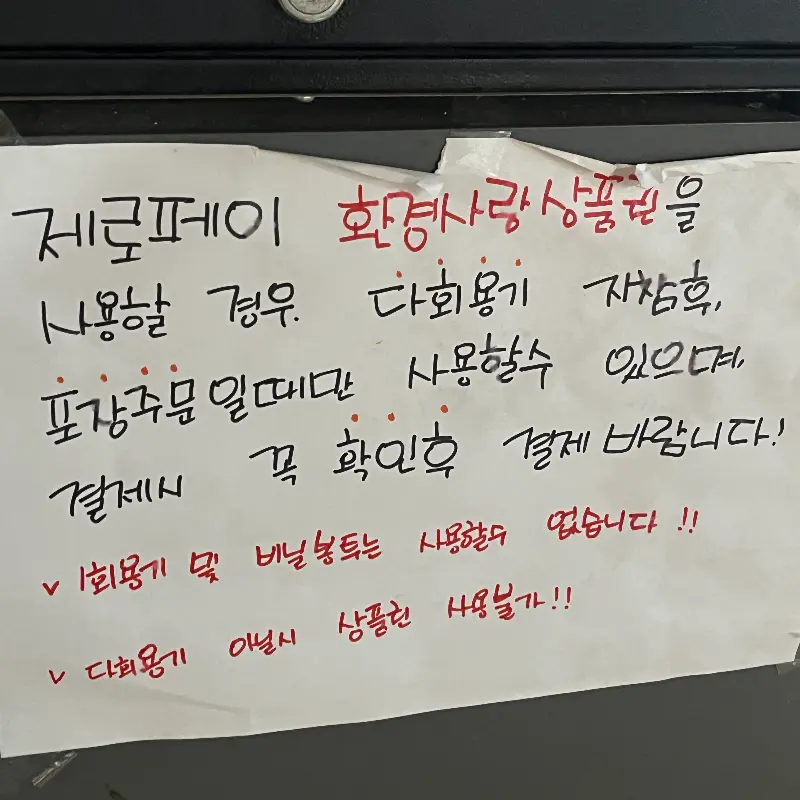 제로페이 환경사랑상품권을
사용할 경우. 다회용기 지참후,
포장주문일때만 사용할수 있으며,
결제시 꼭 확인후 결제 바랍니다!
v 1회용기 및 비닐봉투는 사용할수 없습니다!!
v 다회용기 아닐시 상품권 사용불가!!